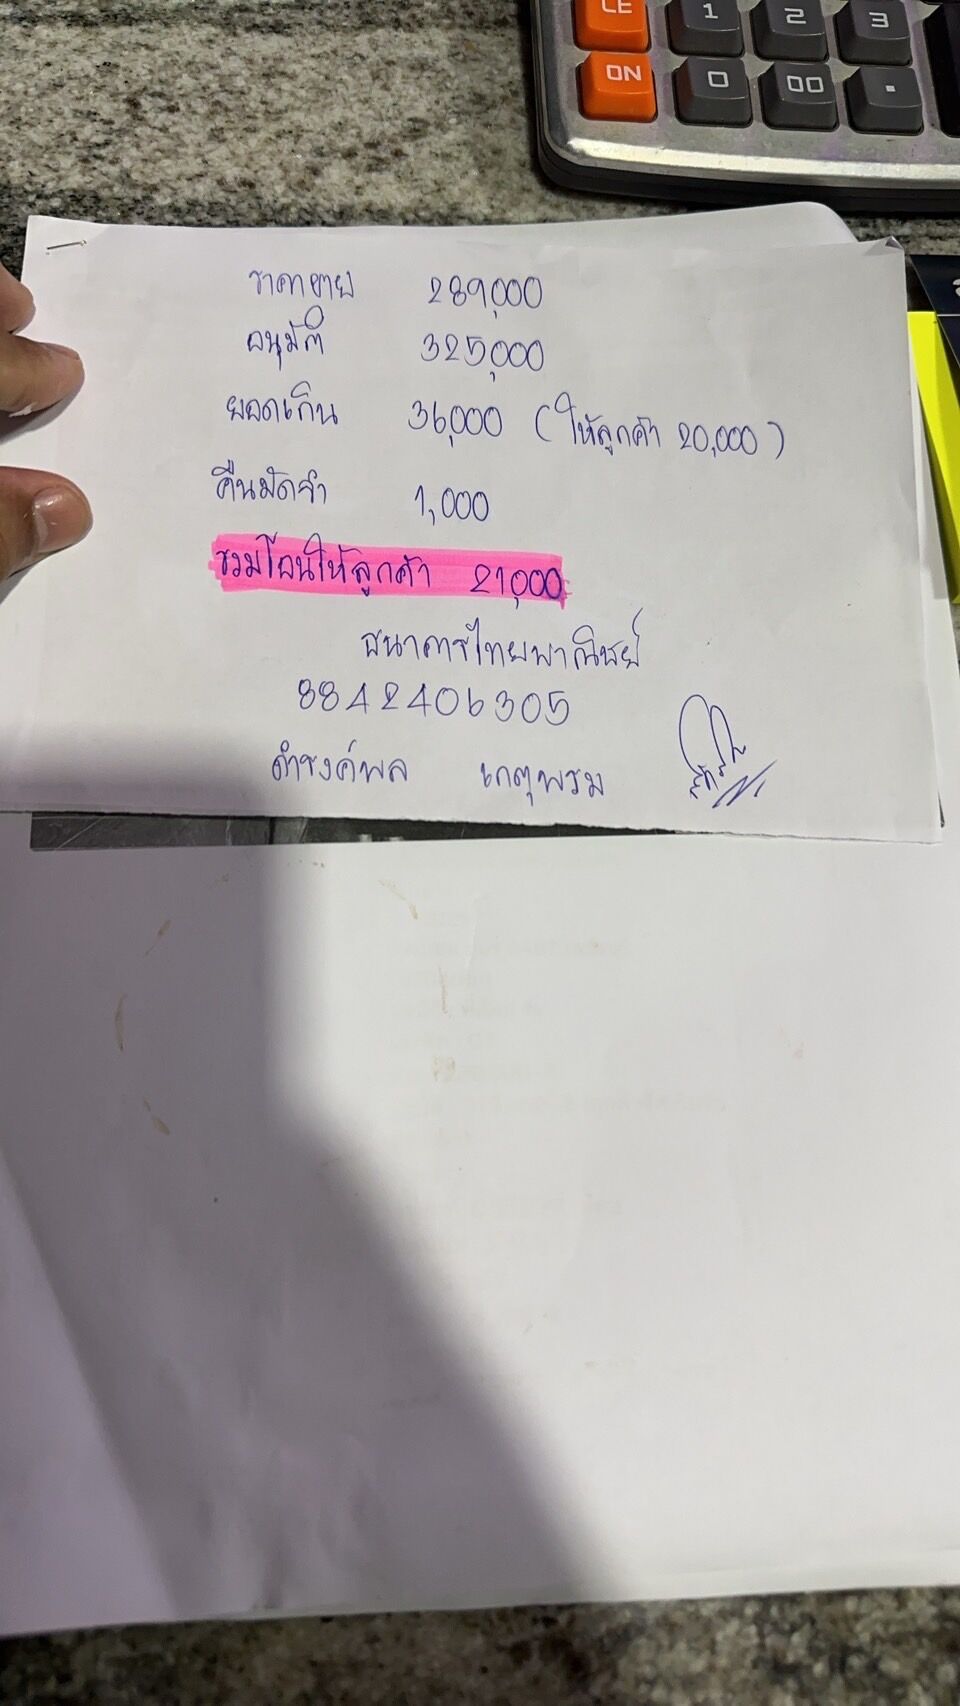 CE 1 2 3
ON 0 00 .
ราคาขาย 289,000
อนุมัติ 325,000
ยอดเกิน 36,000 (ให้ลูกค้า 20,000)
คืนมัดจำ 1,000
รวมโอนให้ลูกค้า 21,000
ธนาคารไทยพาณิชย์
8842406305
ดำรงค์พล เกตุพรม